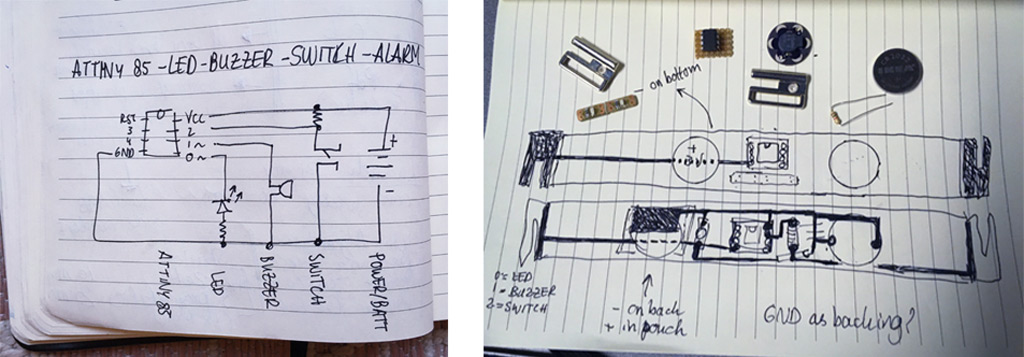 ATTINY 85 - LED - BUZZER - SWITCH - ALARM
RST
3
4
GND
VCC
2
1~
0~
+
-
ATTINY 85
LED
BUZZER
SWITCH
POWER/BATT
- on bottom
+
0 = LED
1 - BUZZER
2 = SWITCH
- on back
+ in pouch
GND as backing?